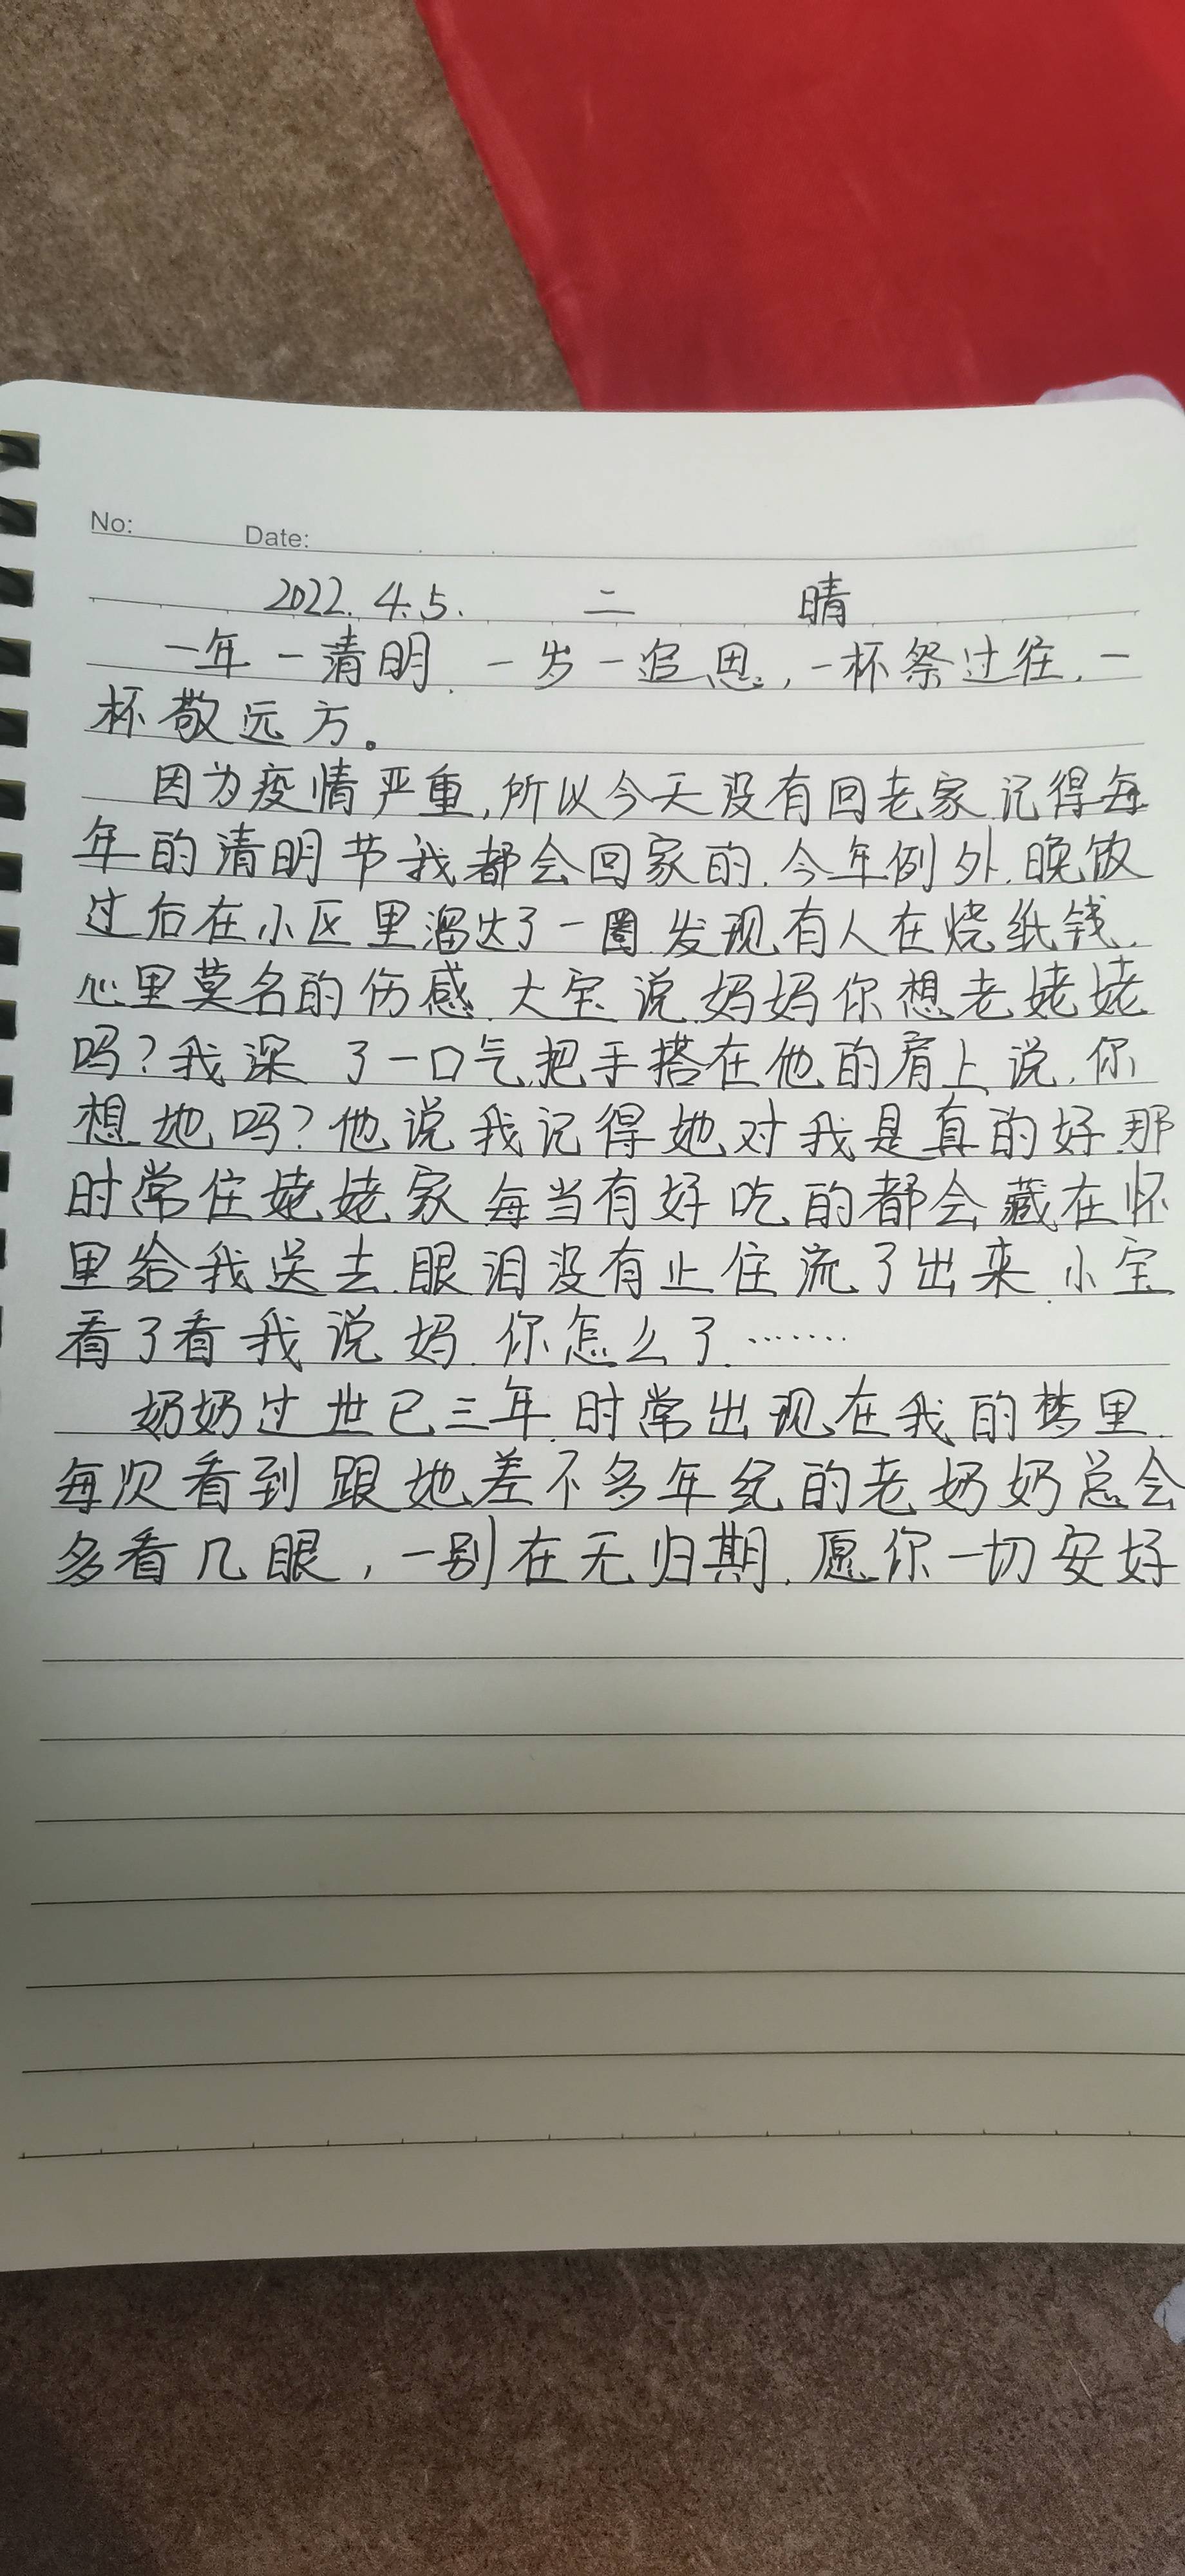 No: Date:
2022.4.5. 二 晴
一年一清明.一岁一追思.,一杯祭过往.一
杯敬远方。
因为疫情严重,所以今天没有回老家.记得每
年的清明节我都会回家的.今年例外.晚饭
过后在小区里溜达了一圈.发现有人在烧纸钱.
心里莫名的伤感.大宝说妈妈你想老姥姥
吗?我深 了一口气.把手搭在他的肩上说.你
想她吗?他说我记得她对我是真的好.那
时常住姥姥家.每当有好吃的都会藏在怀
里给我送去.眼泪没有止住流了出来.小宝
看了看我说妈.你怎么了.……
奶奶过世已三年.时常出现在我的梦里.
每次看到跟她差不多年纪的老奶奶总会
多看几眼,一别在无归期.愿你一切安好